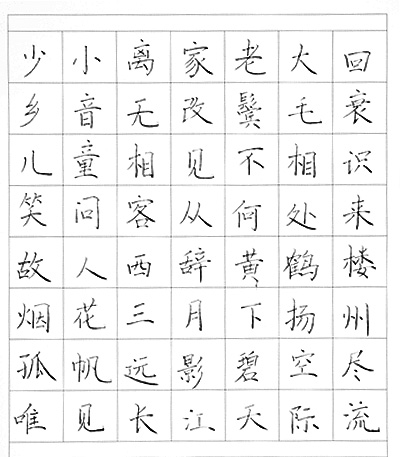 少小离家老大回
乡音无改鬓毛衰
儿童相见不相识
笑问客从何处来
故人西辞黄鹤楼
烟花三月下扬州
孤帆远影碧空尽
唯见长江天际流